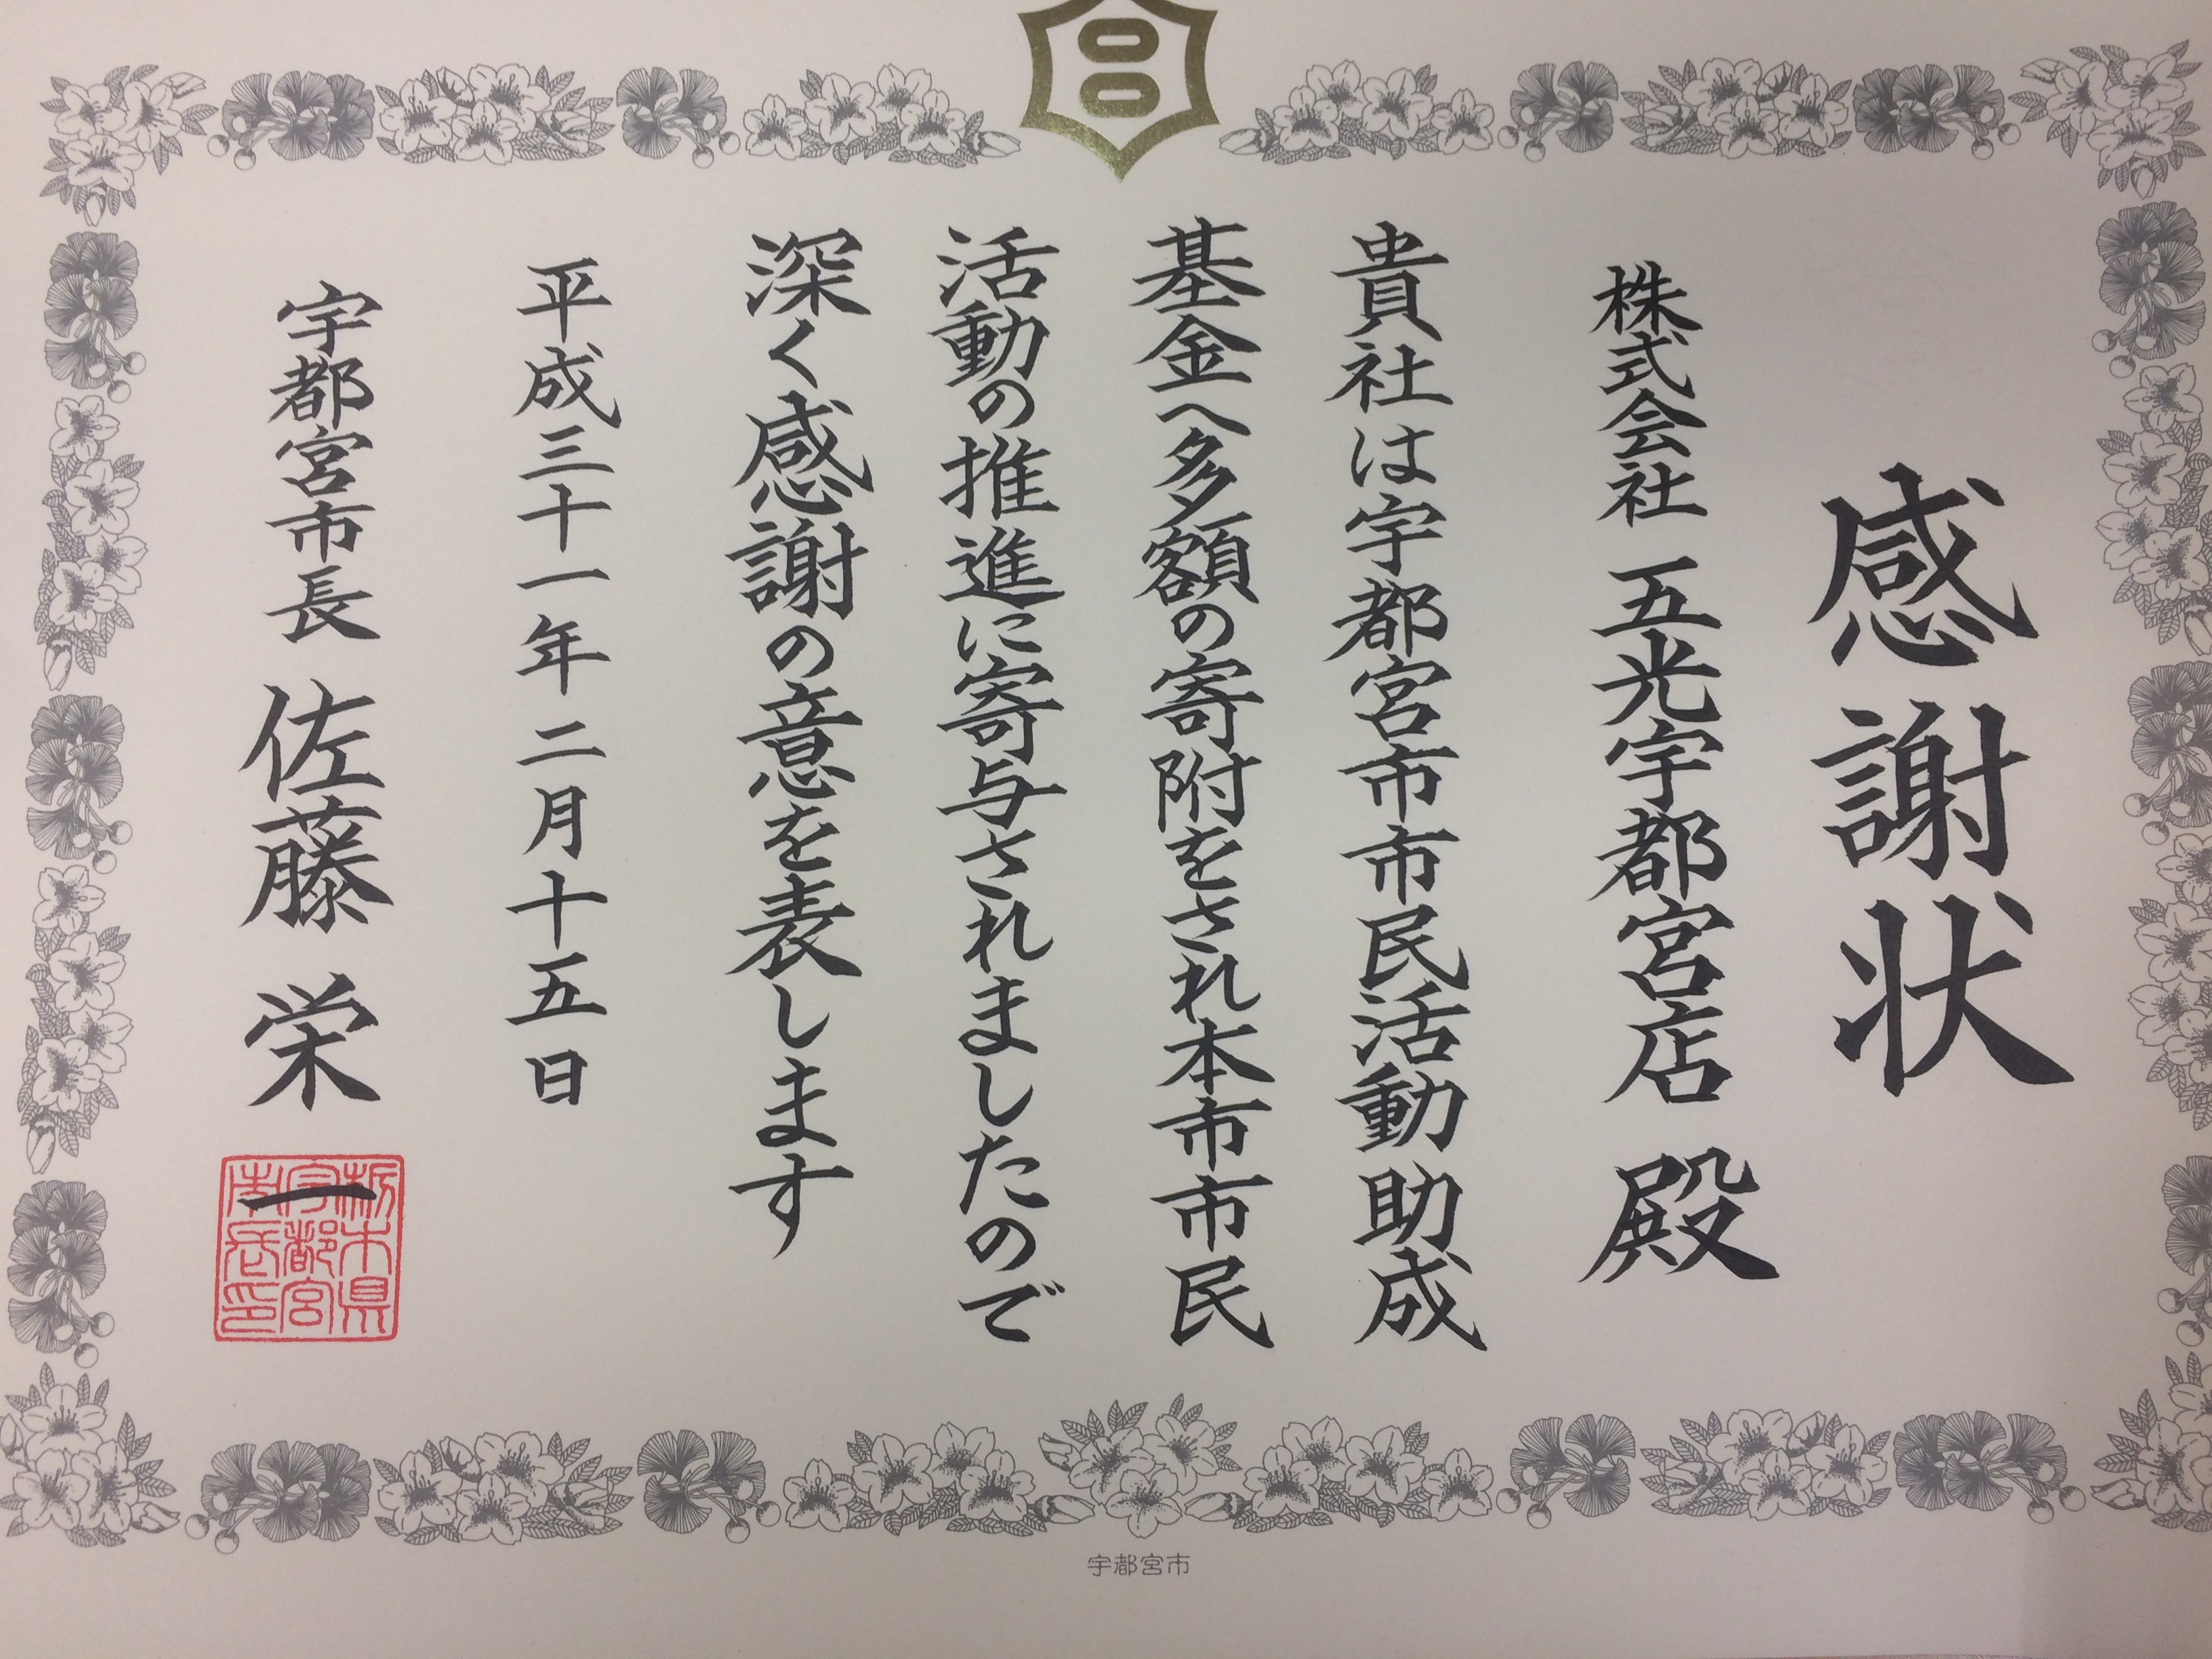 感謝状
株式会社 五光宇都宮店 殿
貴社は宇都宮市市民活動助成
基金へ多額の寄附をされ本市市民
活動の推進に寄与されましたので
深く感謝の意を表します
平成三十一年二月十五日
宇都宮市長 佐藤栄一
栃木県
宇都宮
市長印
宇都宮市